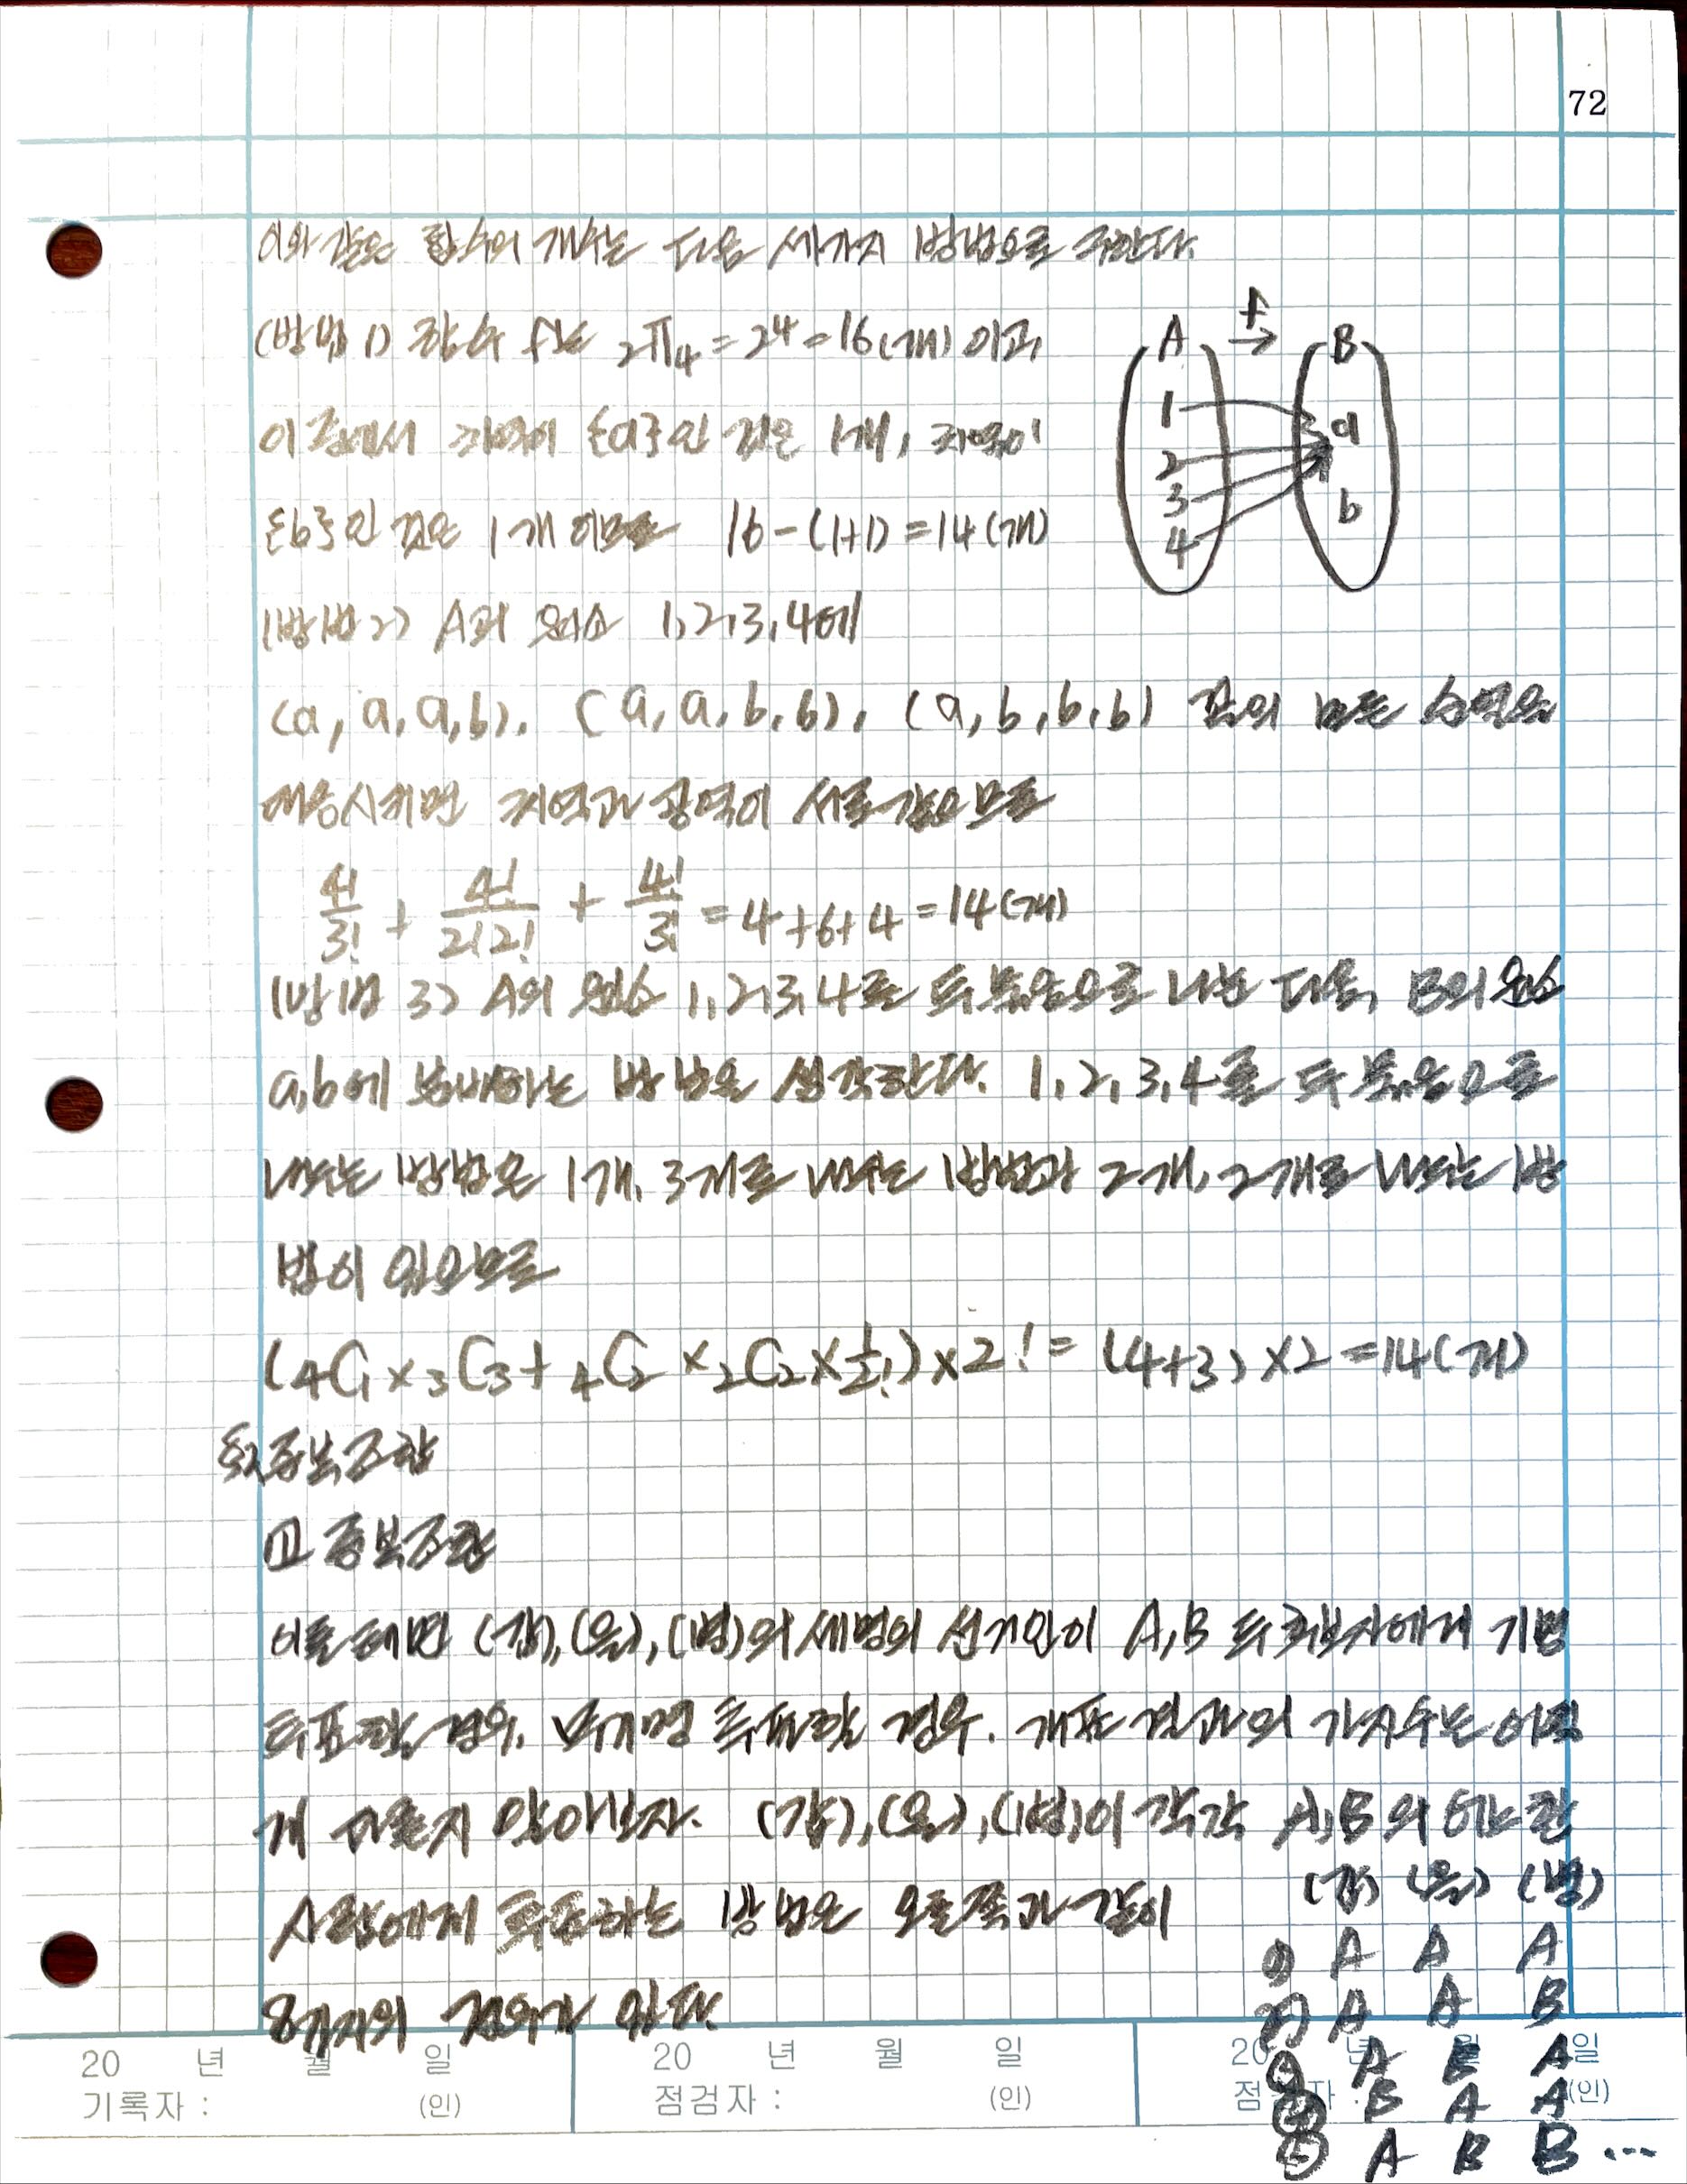 72
이와 같은 함수의 개수는 다음 세가지 방법으로 구한다.
(방법 1) 함수 f는 ₂Π₄ = 2⁴ = 16(개) 이고,
이 중에서 치역이 {a}인 것은 1개, 치역이
{b}인 것은 1개 이므로 16-(1+1)=14(개)
A f→ B
1 a
2
3 b
4
(방법 2) A의 원소 1,2,3,4에
(a, a, a, b), (a, a, b, b), (a, b, b, b) 꼴의 모든 순열을
대응시키면 치역과 공역이 서로 같으므로
4!/3! + 4!/2!2! + 4!/3! = 4+6+4 = 14(개)
(방법 3) A의 원소 1,2,3,4를 두 묶음으로 나눈 다음, B의 원소
a,b에 분배하는 방법을 생각한다. 1,2,3,4를 두 묶음으로
나누는 방법은 1개, 3개로 나누는 방법과 2개, 2개로 나누는 방
법이 있으므로
(₄C₁×₃C₃+₄C₂×₂C₂×1/2!)×2! = (4+3)×2=14(개)
§2 중복조합
① 중복조합
이를테면 (갑),(을),(병)의 세명의 선거인이 A,B 두 후보자에게 기명
투표할 경우, 무기명 투표할 경우. 개표 결과의 가지수는 어떻
게 다른지 알아보자. (갑),(을),(병)이 각각 A,B의 어느 한
사람에게 투표하는 방법은 오른쪽과 같이
8가지의 경우가 있다.
(갑) (을) (병)
① A A A
② A A B
③ A B A
④ B A A
⑤ A B B ...
20 년 월 일
기록자 : (인)
20 년 월 일
점검자 : (인)
20 년 월 일
점검자 : (인)